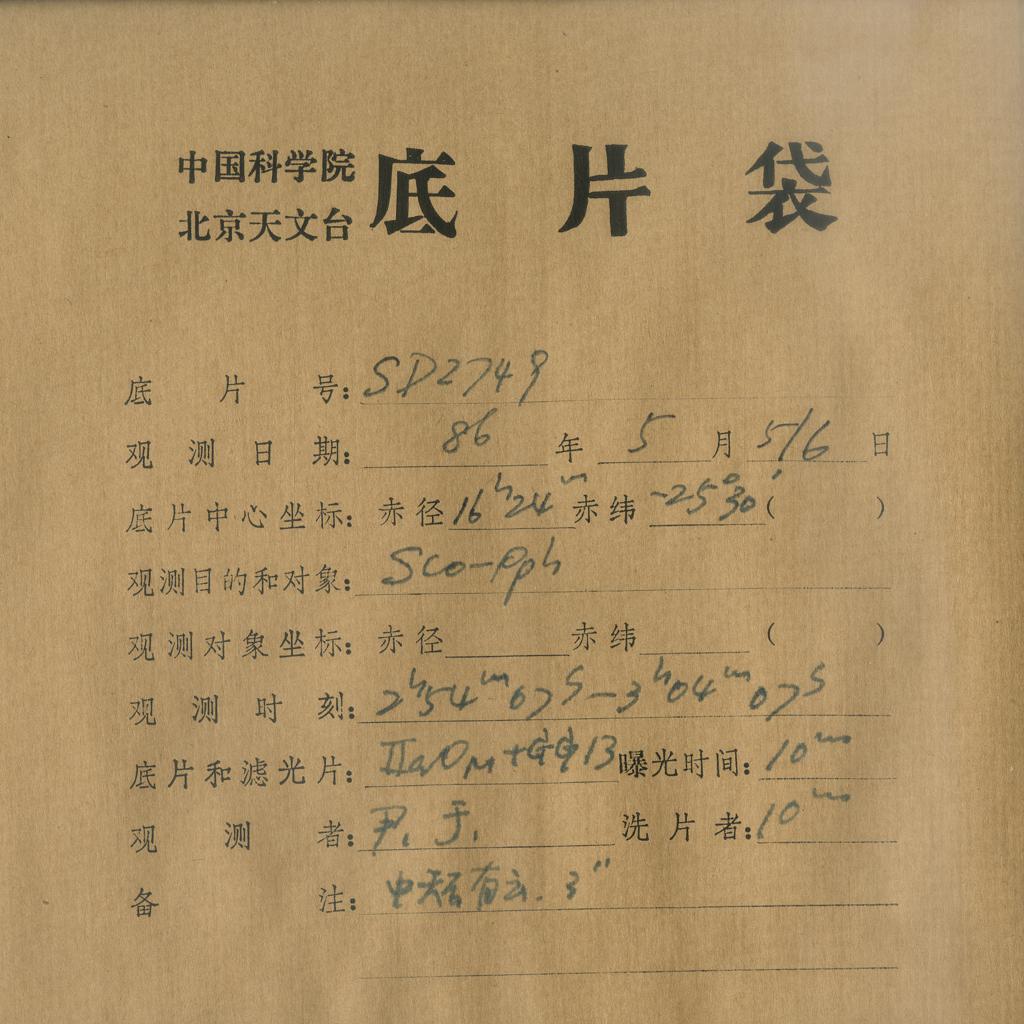 中国科学院
北京天文台
底片袋
底片号: SD2749
观测日期: 86年5月5/6日
底片中心坐标: 赤径16h24m赤纬-25°30′( )
观测目的和对象: Sco-Oph
观测对象坐标: 赤径 赤纬 ( )
观测时刻: 2h54m07s-3h04m07s
底片和滤光片: IIaO +GG13 曝光时间: 10m
观测者: 尹.于. 洗片者: 10m
备注: 有云. 3″